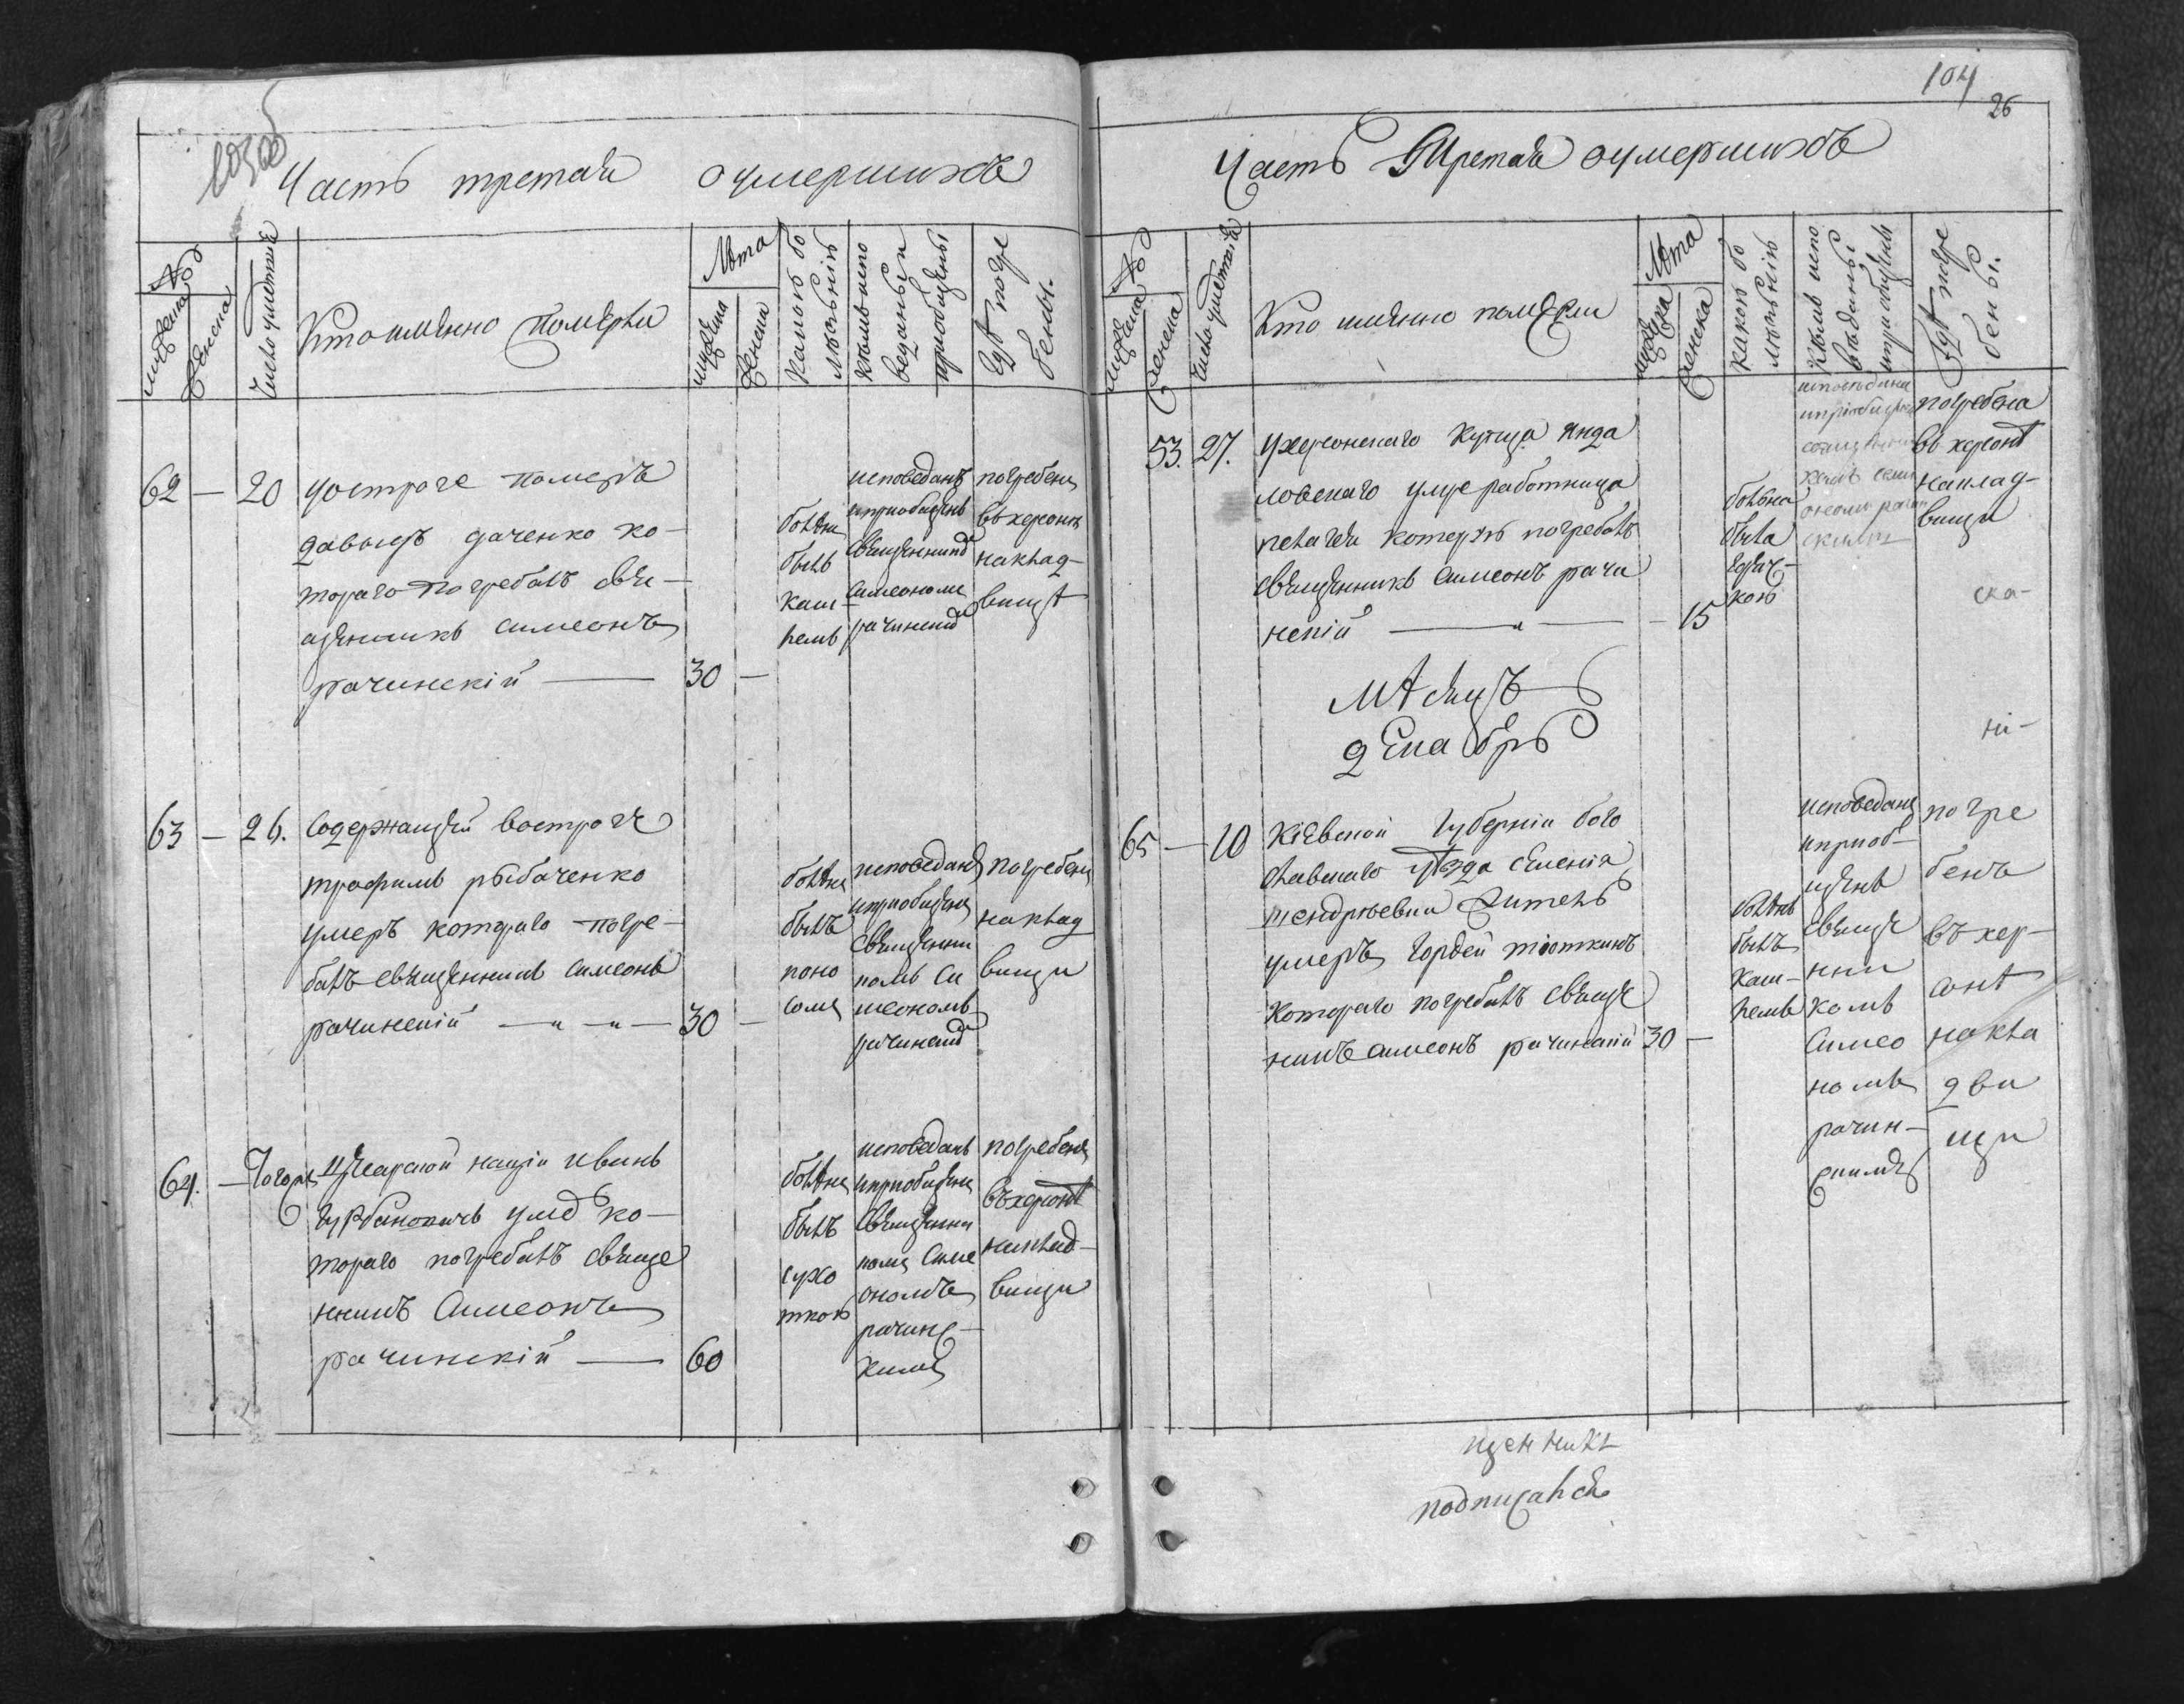 103об
Часть третая о умершихъ
№
мужеска
женска
Число умертвія
Кто имянно Померли
Лѣта
мужеска
женска
какою бо
лѣзнію
кѣмъ испо
веданы и
приобщены
гдѣ погре
бены.
62 — 20 уостроге померъ
давыдъ даченко ко-
тораго погребалъ свя-
щенникъ Симеонъ
рачинскій — 30 —
боленъ
былъ
каш-
лемъ
исповеданъ
иприобщенъ
священник
Симеономъ
рачинским
погребенъ
въ херсонѣ
наклад-
вищѣ
63 — 26. Содержащей вострогѣ
трофимъ рыбаченко
умеръ котораго погре-
балъ священникъ Симеонъ
рачинскій — " — " — 30 —
боленъ
былъ
поно
сомъ
исповеданъ
иприобщенъ
священни
комъ Си
меономъ
рачинским
погребенъ
наклад
вищи
64. — Тогожъ Цесарской нацыи иванъ
урбановичъ умеръ ко-
тораго погребалъ свяще
нникъ Симеонъ
рачинскій — 60
боленъ
былъ
сухо
ткою
исповеданъ
иприобщенъ
священни
комъ Симе
ономъ
рачинс-
кимъ
погребенъ
въ херсонѣ
наклад-
вищи
104
26
Часть Третая о умершихъ
№
мужеска
женска
Число умертвія
Кто имянно померли
Лѣта
мужеска
женска
какою бо
лѣзнію
Кѣмъ испо
вѣданы
и приобщены
Гдѣ погре
бены.
53. 27. ухерсонскаго купца янда
ловскаго умре работница
пелагея которую погребалъ
священникъ Симеонъ рачи
нскій — " — 15
больна
была
горяч-
кою
исповѣдана
и приобщена
священни
комъ Сим
еономъ рачин
скимъ
погребена
въ херсонѣ
наклад-
вищи
ска-
ні-
Мѣсяцъ
декабрь
65 — 10 Кіевской губерніи бого
славскаго уѣзда Селенія
шендрѣевки житель
умеръ гордей тюткинъ
котораго погребалъ свяще
никъ Симеонъ рачинскій 30 —
боленъ
былъ
каш-
лемъ
исповеданъ
иприоб-
щенъ
свяще
нни
комъ
Симео
номъ
рачин-
скимъ
погре
бенъ
въ хер-
сонѣ
накла
дви
щи
щенникъ
подписался